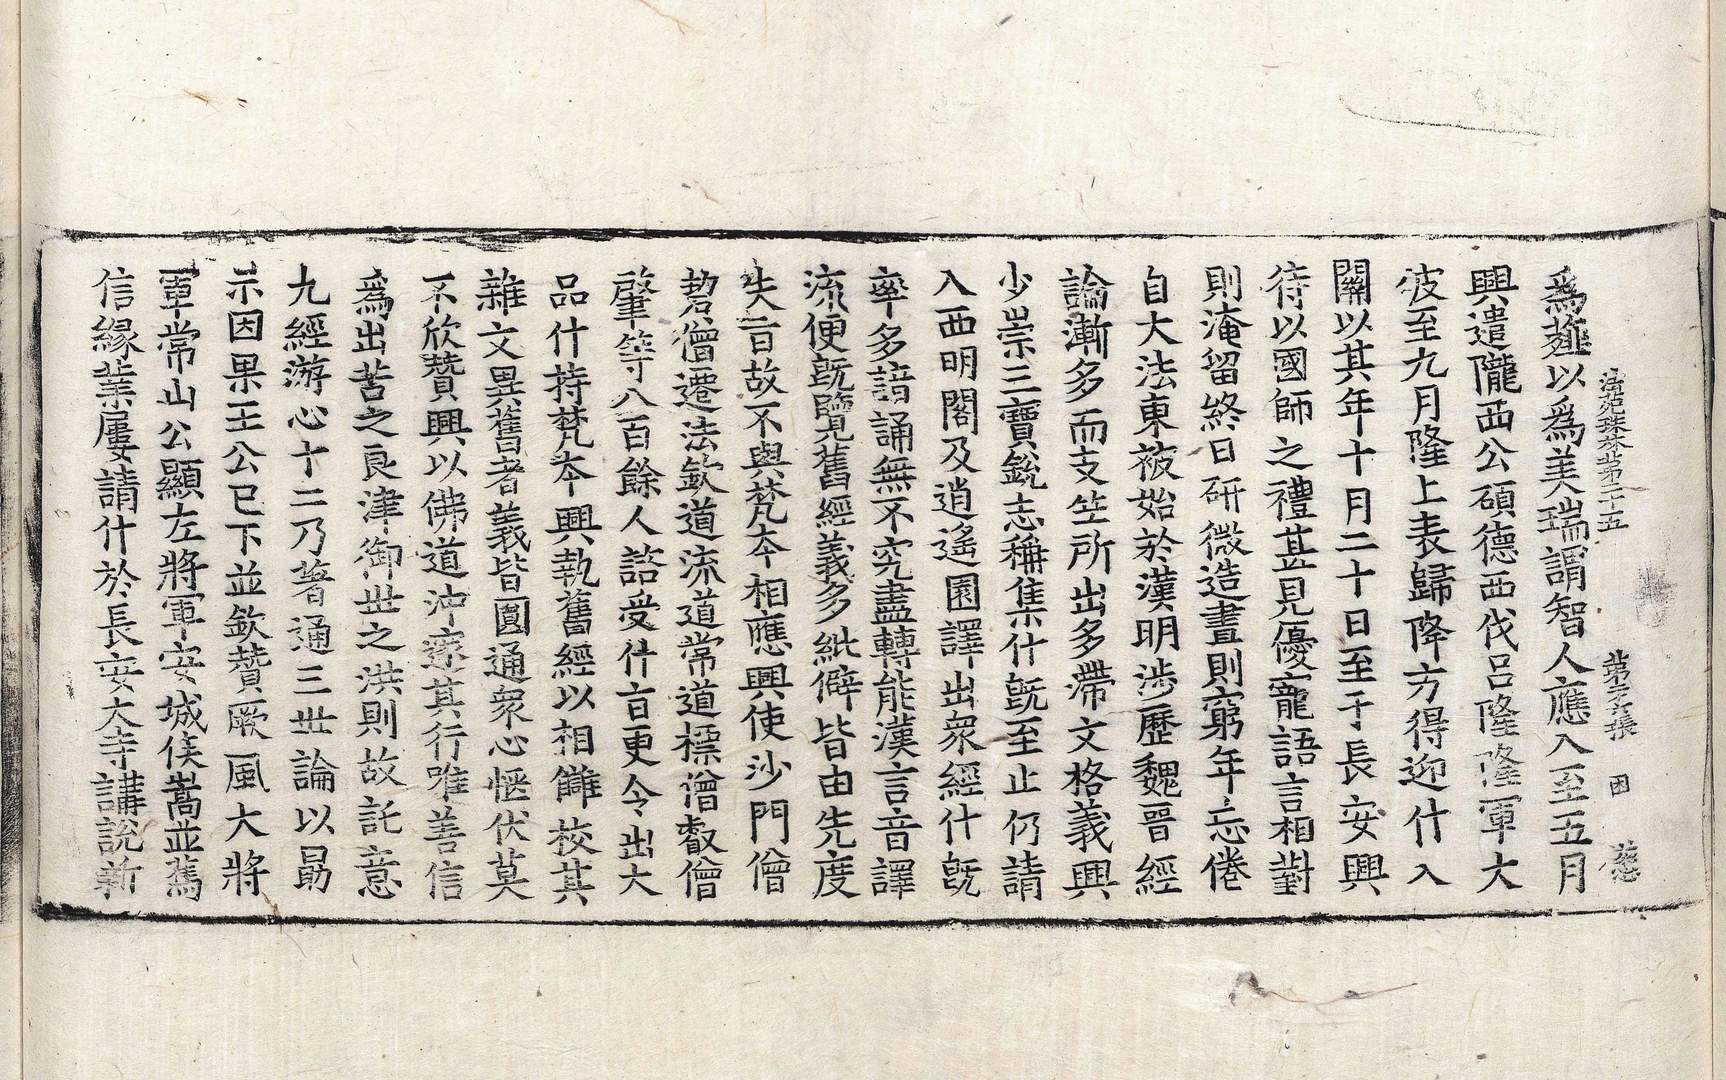 法苑珠林第二十五　第　張　因　慈
爲薤以爲美瑞謂智人應入至五月
興遣隴西公碩德西伐呂隆隆軍大
彼至九月隆上表歸降方得迎什入
關以其年十月二十日至于長安興
待以國師之禮甚見優寵語言相對
則淹留終日研微造盡則窮年忘倦
自大法東被始於漢明涉歷魏晉經
論漸多而支竺所出多滯文格義興
少崇三寶銳志稱集什既至止仍請
入西明閣及逍遙園譯出衆經什既
率多諳誦無不究盡轉能漢言音譯
流便既覽舊經義多紕僻皆由先度
失旨故不與梵本相應興使沙門僧
䂮僧遷法欽道流道常道標僧叡僧
肇等八百餘人諮受什旨更令出大
品什持梵本興執舊經以相讎校其
雜文異舊者義皆圓通衆心愜伏莫
不欣贊興以佛道沖邃其行唯善信
爲出苦之良津御世之洪則故託意
九經游心十二乃著通三世論以勗
示因果王公已下並欽贊厥風大將
軍常山公顯左將軍安城侯嵩並篤
信緣業屢請什於長安大寺講說新